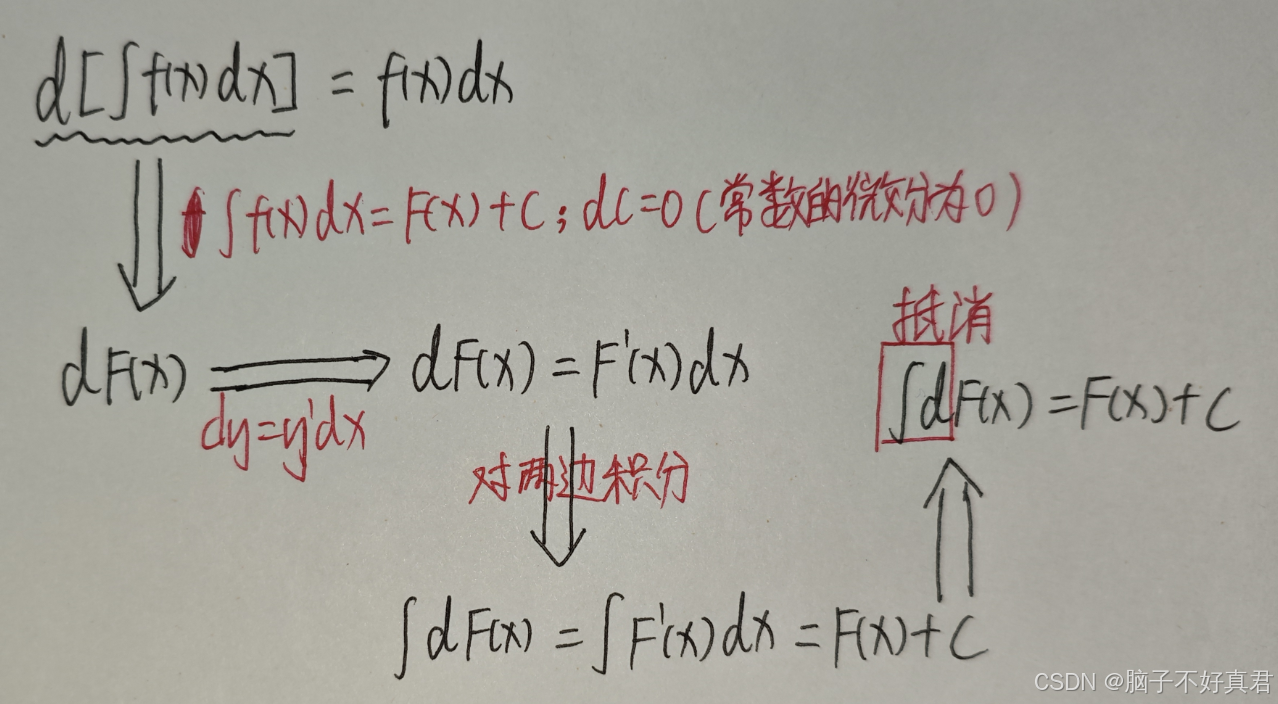 d[∫f(x)dx] = f(x)dx
∫f(x)dx=F(x)+C;dC=0(常数的微分为0)
抵消
dF(x) ⟹ dF(x)=F'(x)dx
∫dF(x)=F(x)+C
dy=y'dx
对两边积分
∫dF(x)=∫F'(x)dx=F(x)+C
CSDN @脑子不好真君